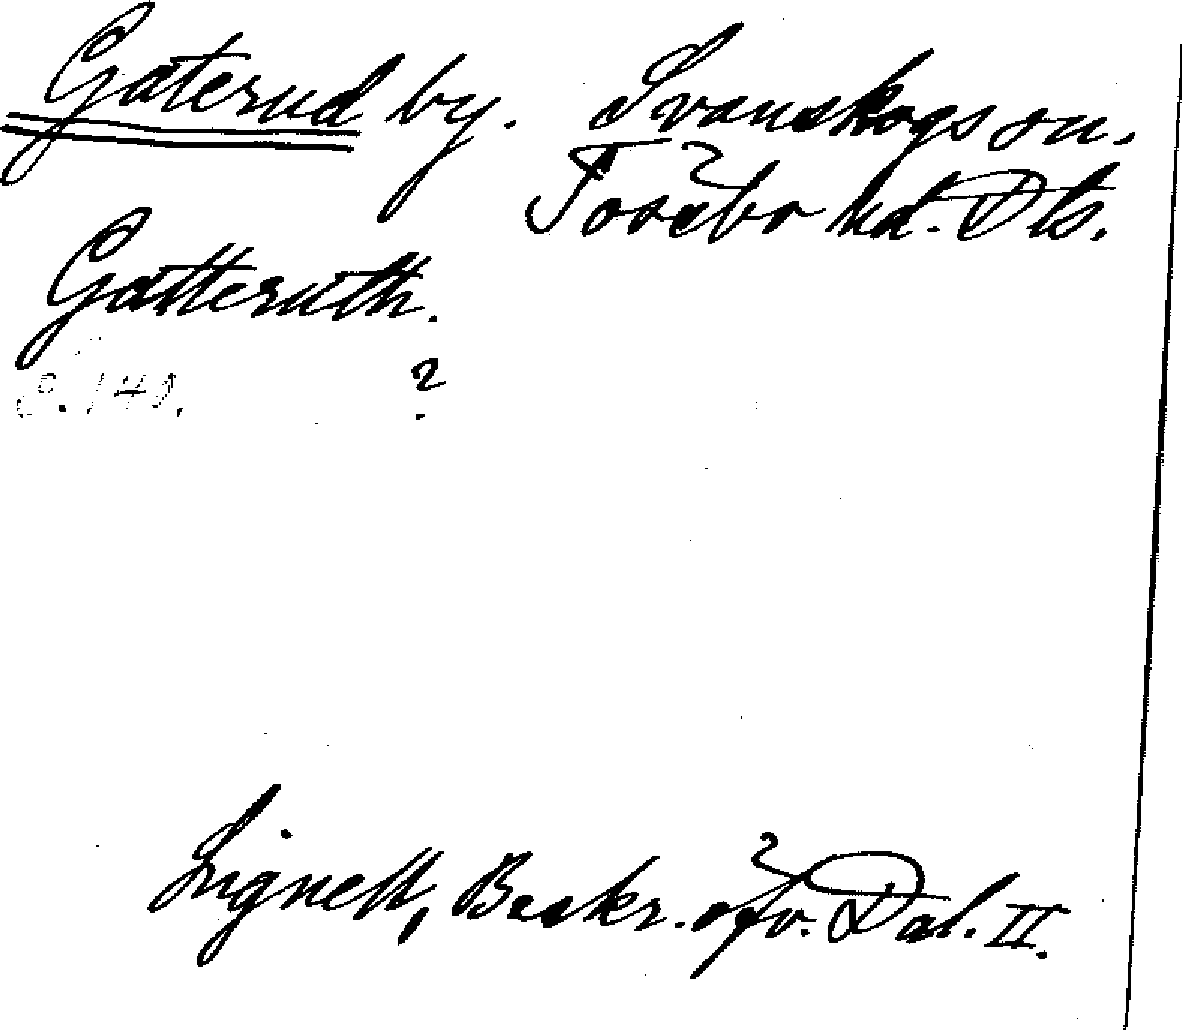 Gaterud by. Svanskogs sn.
Tössbo hd. Dls.
Gatteruth.
?
Lignell, Beskr. öfv. Dal. II.